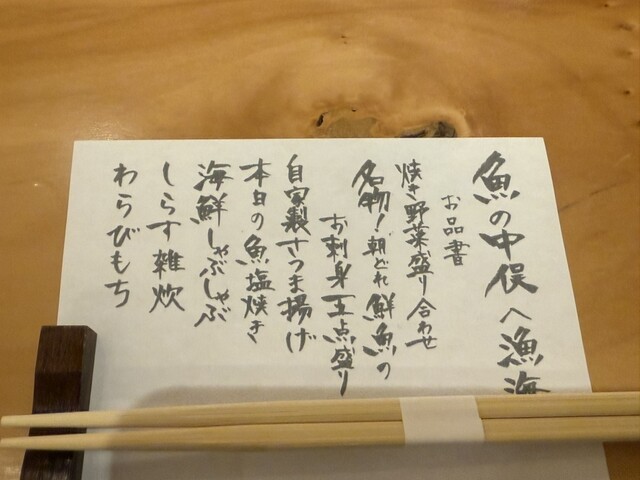 魚の中俣へ漁海
お品書
焼き野菜盛り合わせ
名物!朝どれ鮮魚の
お刺身五点盛り
自家製さつま揚げ
本日の魚塩焼き
海鮮しゃぶしゃぶ
しらす雑炊
わらびもち